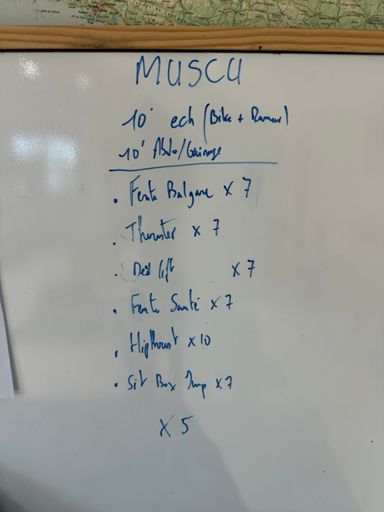 MUSCU
10' ech (Bike + Rameur)
10' Abdo/Gainage
. Fente Bulgare x 7
. Thruster x 7
. Dead lift x 7
. Fente Sauté x 7
. Hipthrust x 10
. Sit Box Jump x 7
x 5